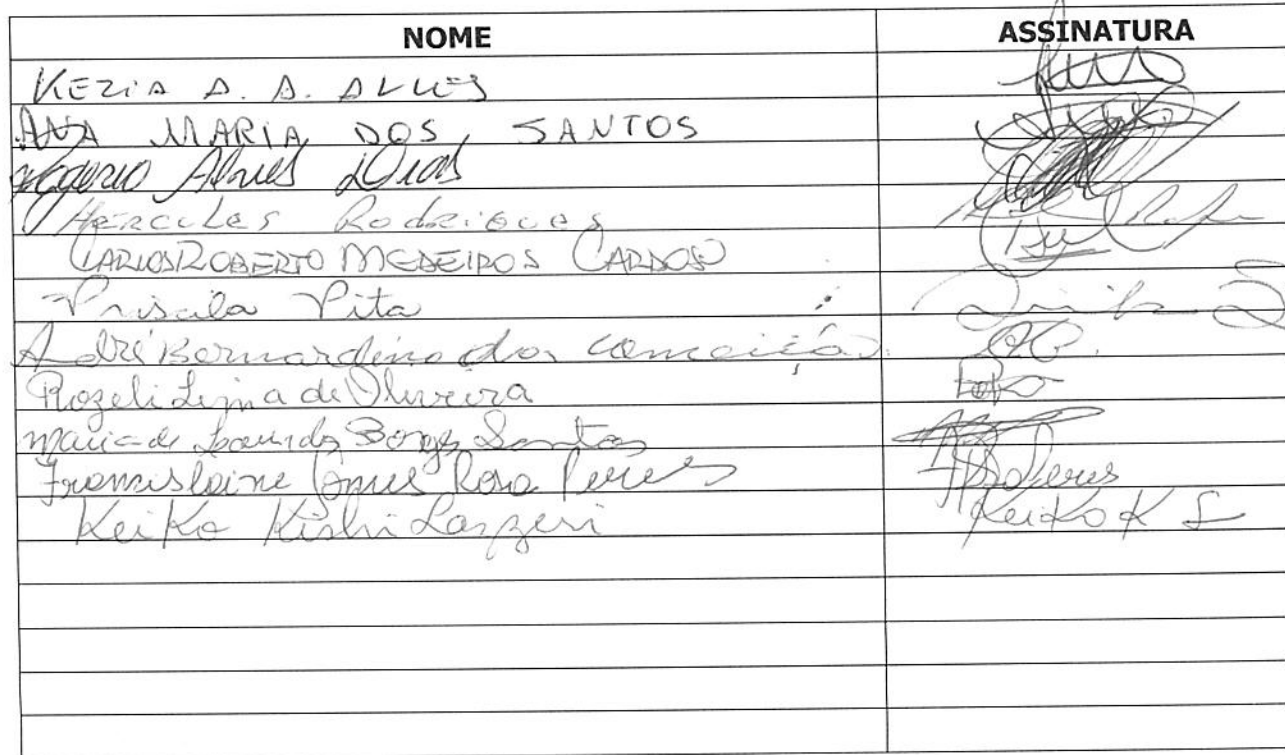 NOME ASSINATURA
KEZIA A. A. ALVES
ANA MARIA DOS SANTOS
Rogerio Alves Dias
Hercules Rodrigues
CARLOS ROBERTO MEDEIROS CARDOSO
Priscila Pita
André Bernardino dos Conceição.
Rozeli Lima de Oliveira
Maria de Lourdes Borges Santos
Franislaine Gomes Rosa Peres
Keiko Kishi Lazzeri Keiko K L